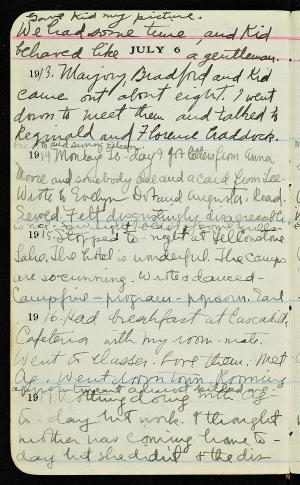 Gave Kid my picture.
We had some time and Kid
behaved like a gentleman.
JULY 6
1913. Marjory, Bradford and Kid
came out about eight. I went
down to meet them and talked to
Reginald and Florence Craddock.
1914 Monday To-day I got letters from Anna
and somebody else and a card from Lee
Wrote to Evelyn D. and Augusta. Read.
Sewed. Felt disgustingly disagreeable
1915. Stopped to-night at Yellowstone
Lake. The hotel is wonderful. The camps
are so cunning. Wrote & danced
Campfire - program - popcorn.
1916. Had breakfast at Cascadilla
Cafeteria with my room-mate.
Went to classes. Love them. Met
Ag. Went down town.
1917. Nothing doing with
to-day but work. I thought
mother was coming home to-
day but she didn't & the dis-